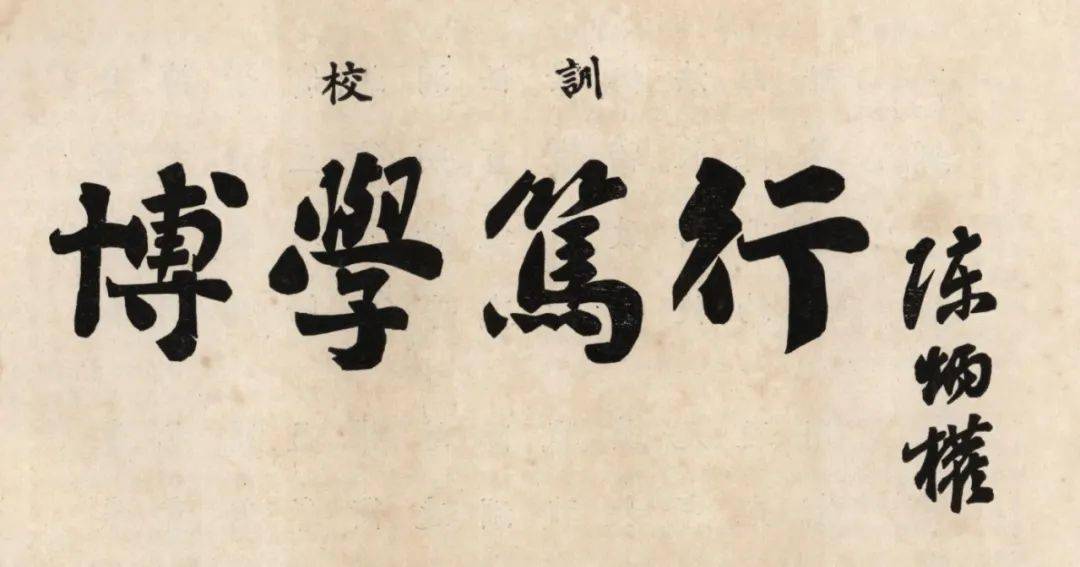 校訓
博學篤行
陳炳權